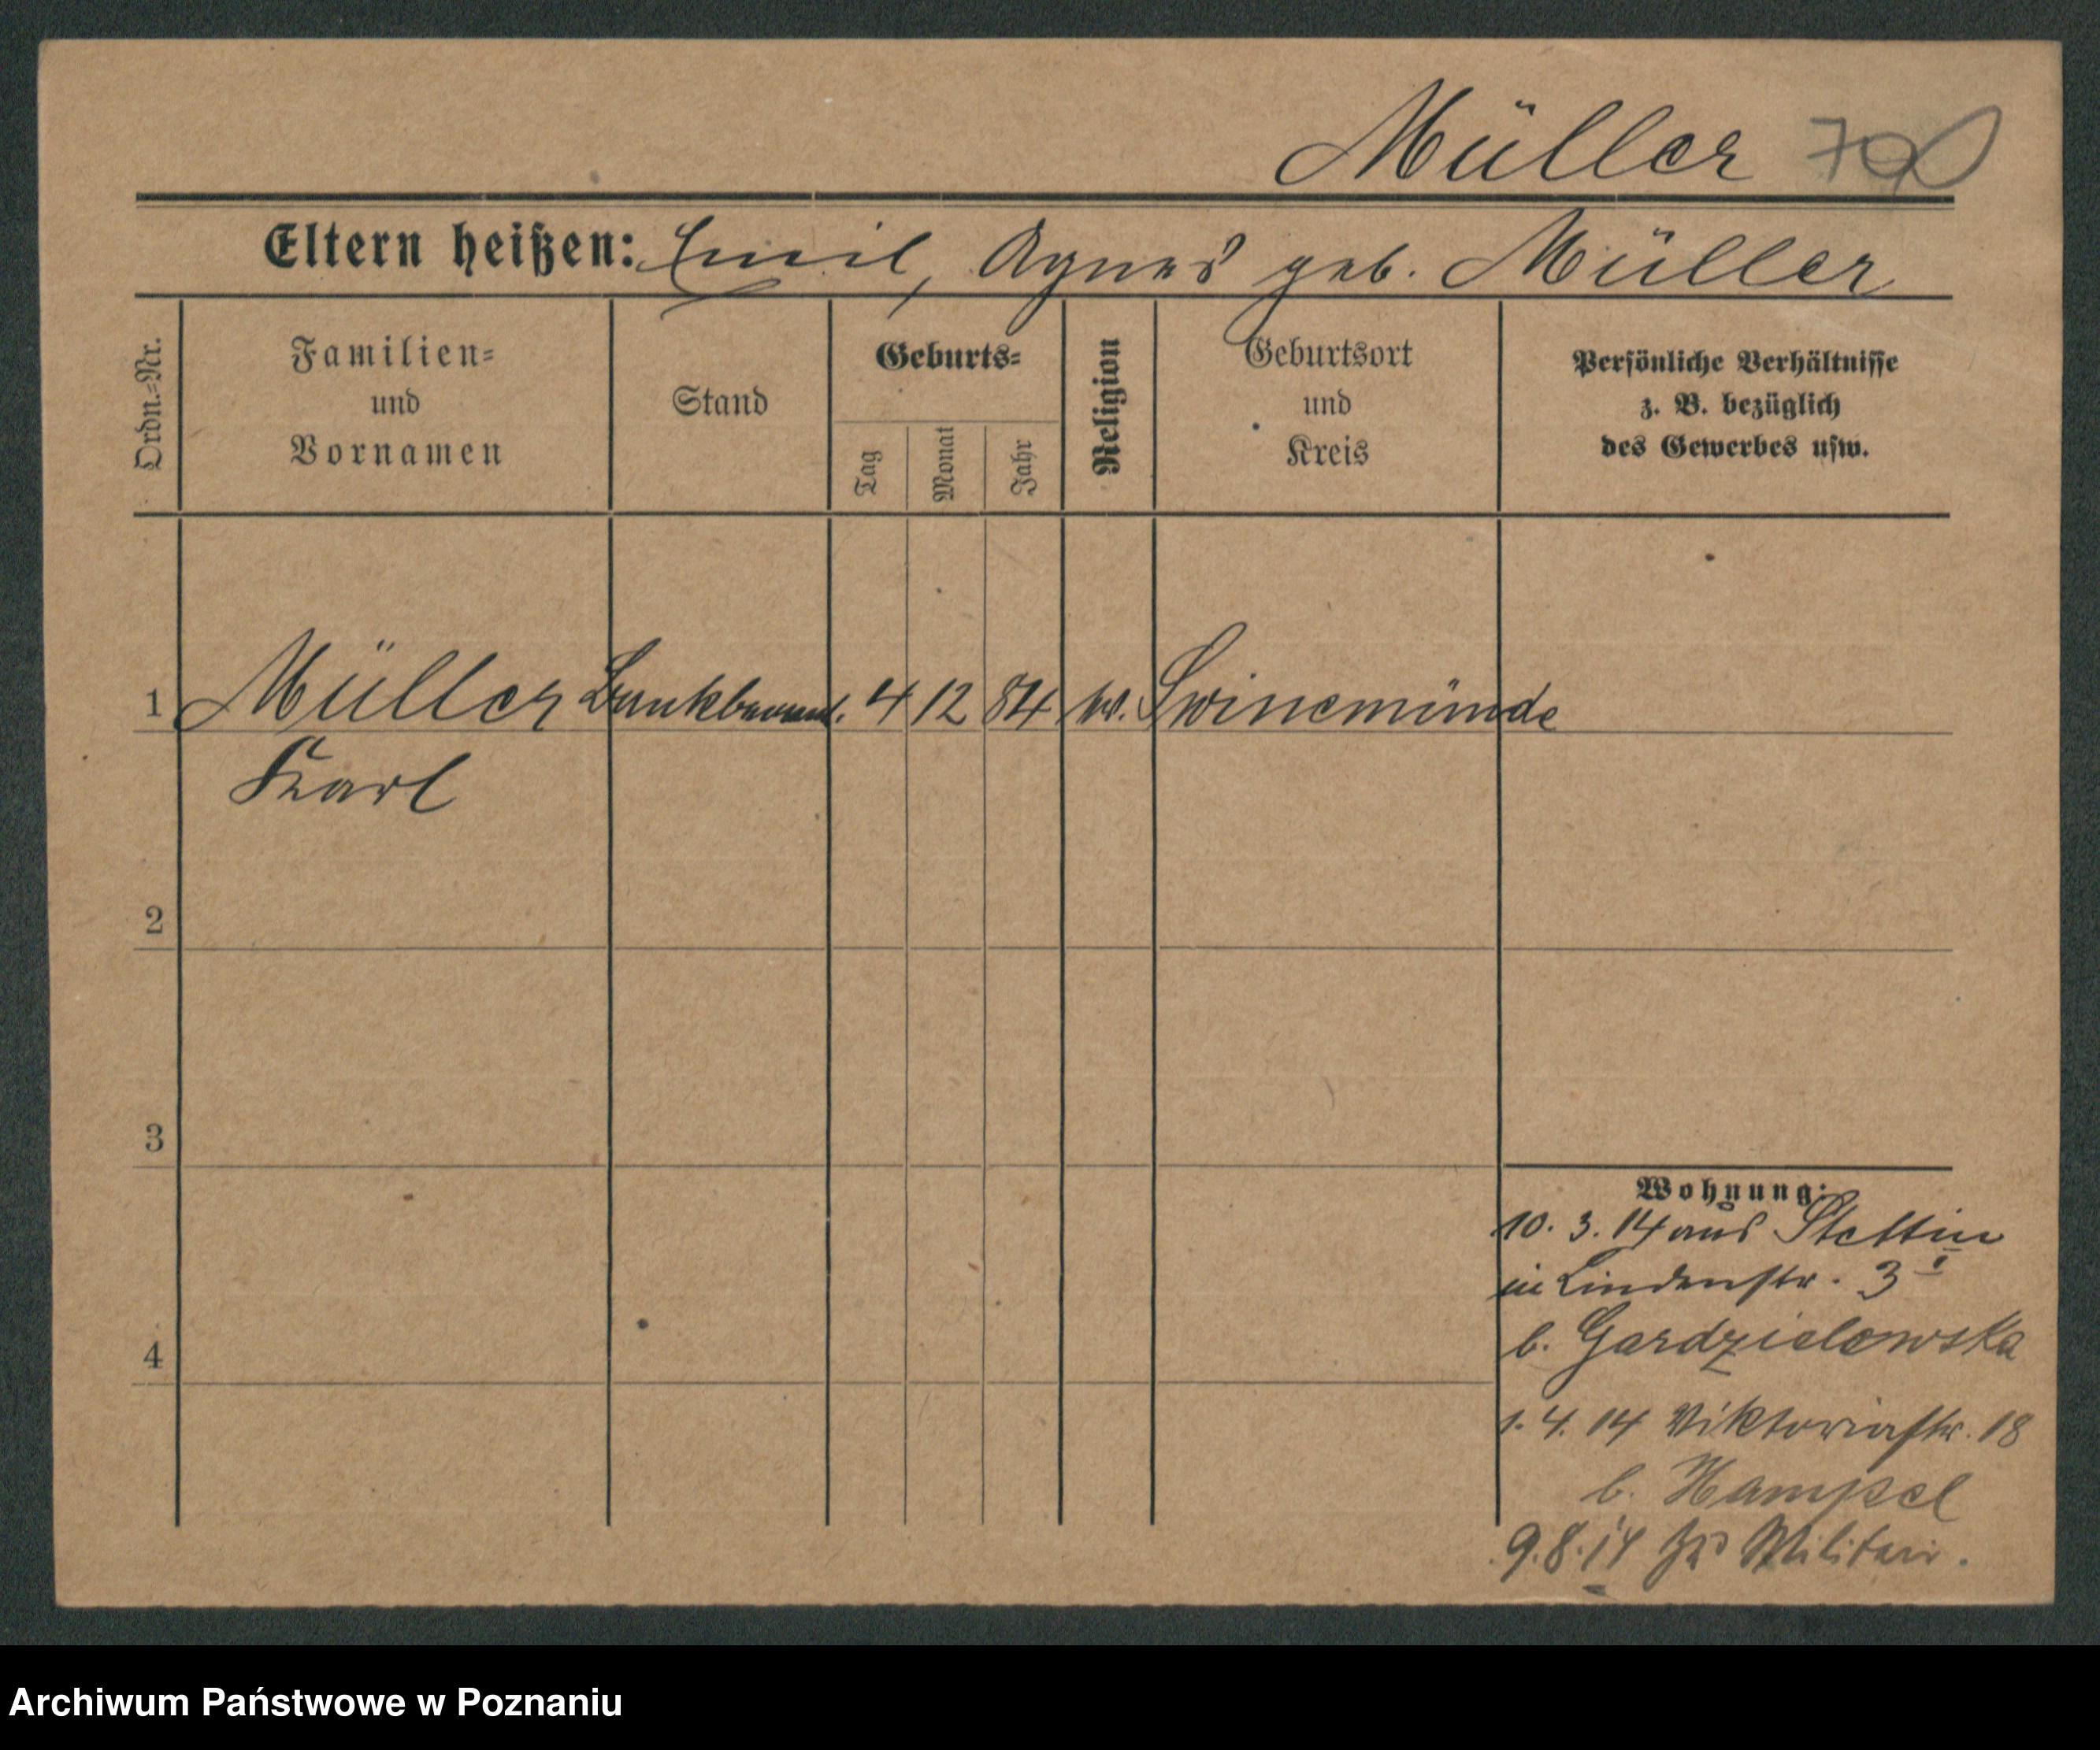 Müller 79
Eltern heißen: Emil, Agnes geb. Müller
Ordn.=Nr.
Familien=
und
Vornamen
Stand
Geburts=
Tag
Monat
Jahr
Religion
Geburtsort
und
Kreis
Persönliche Verhältnisse
z. B. bezüglich
des Gewerbes usw.
1 Müller Bankbeamt. 4 12 84 ev. Swinemünde
Karl
2
3
4
Wohnung:
10. 3. 14 aus Stettin
in Lindenstr. 3 I
b. Gardzielewska
1. 4. 14 Viktoriastr. 18
b. Hampel
9.8.14 zu Militair.
Archiwum Państwowe w Poznaniu